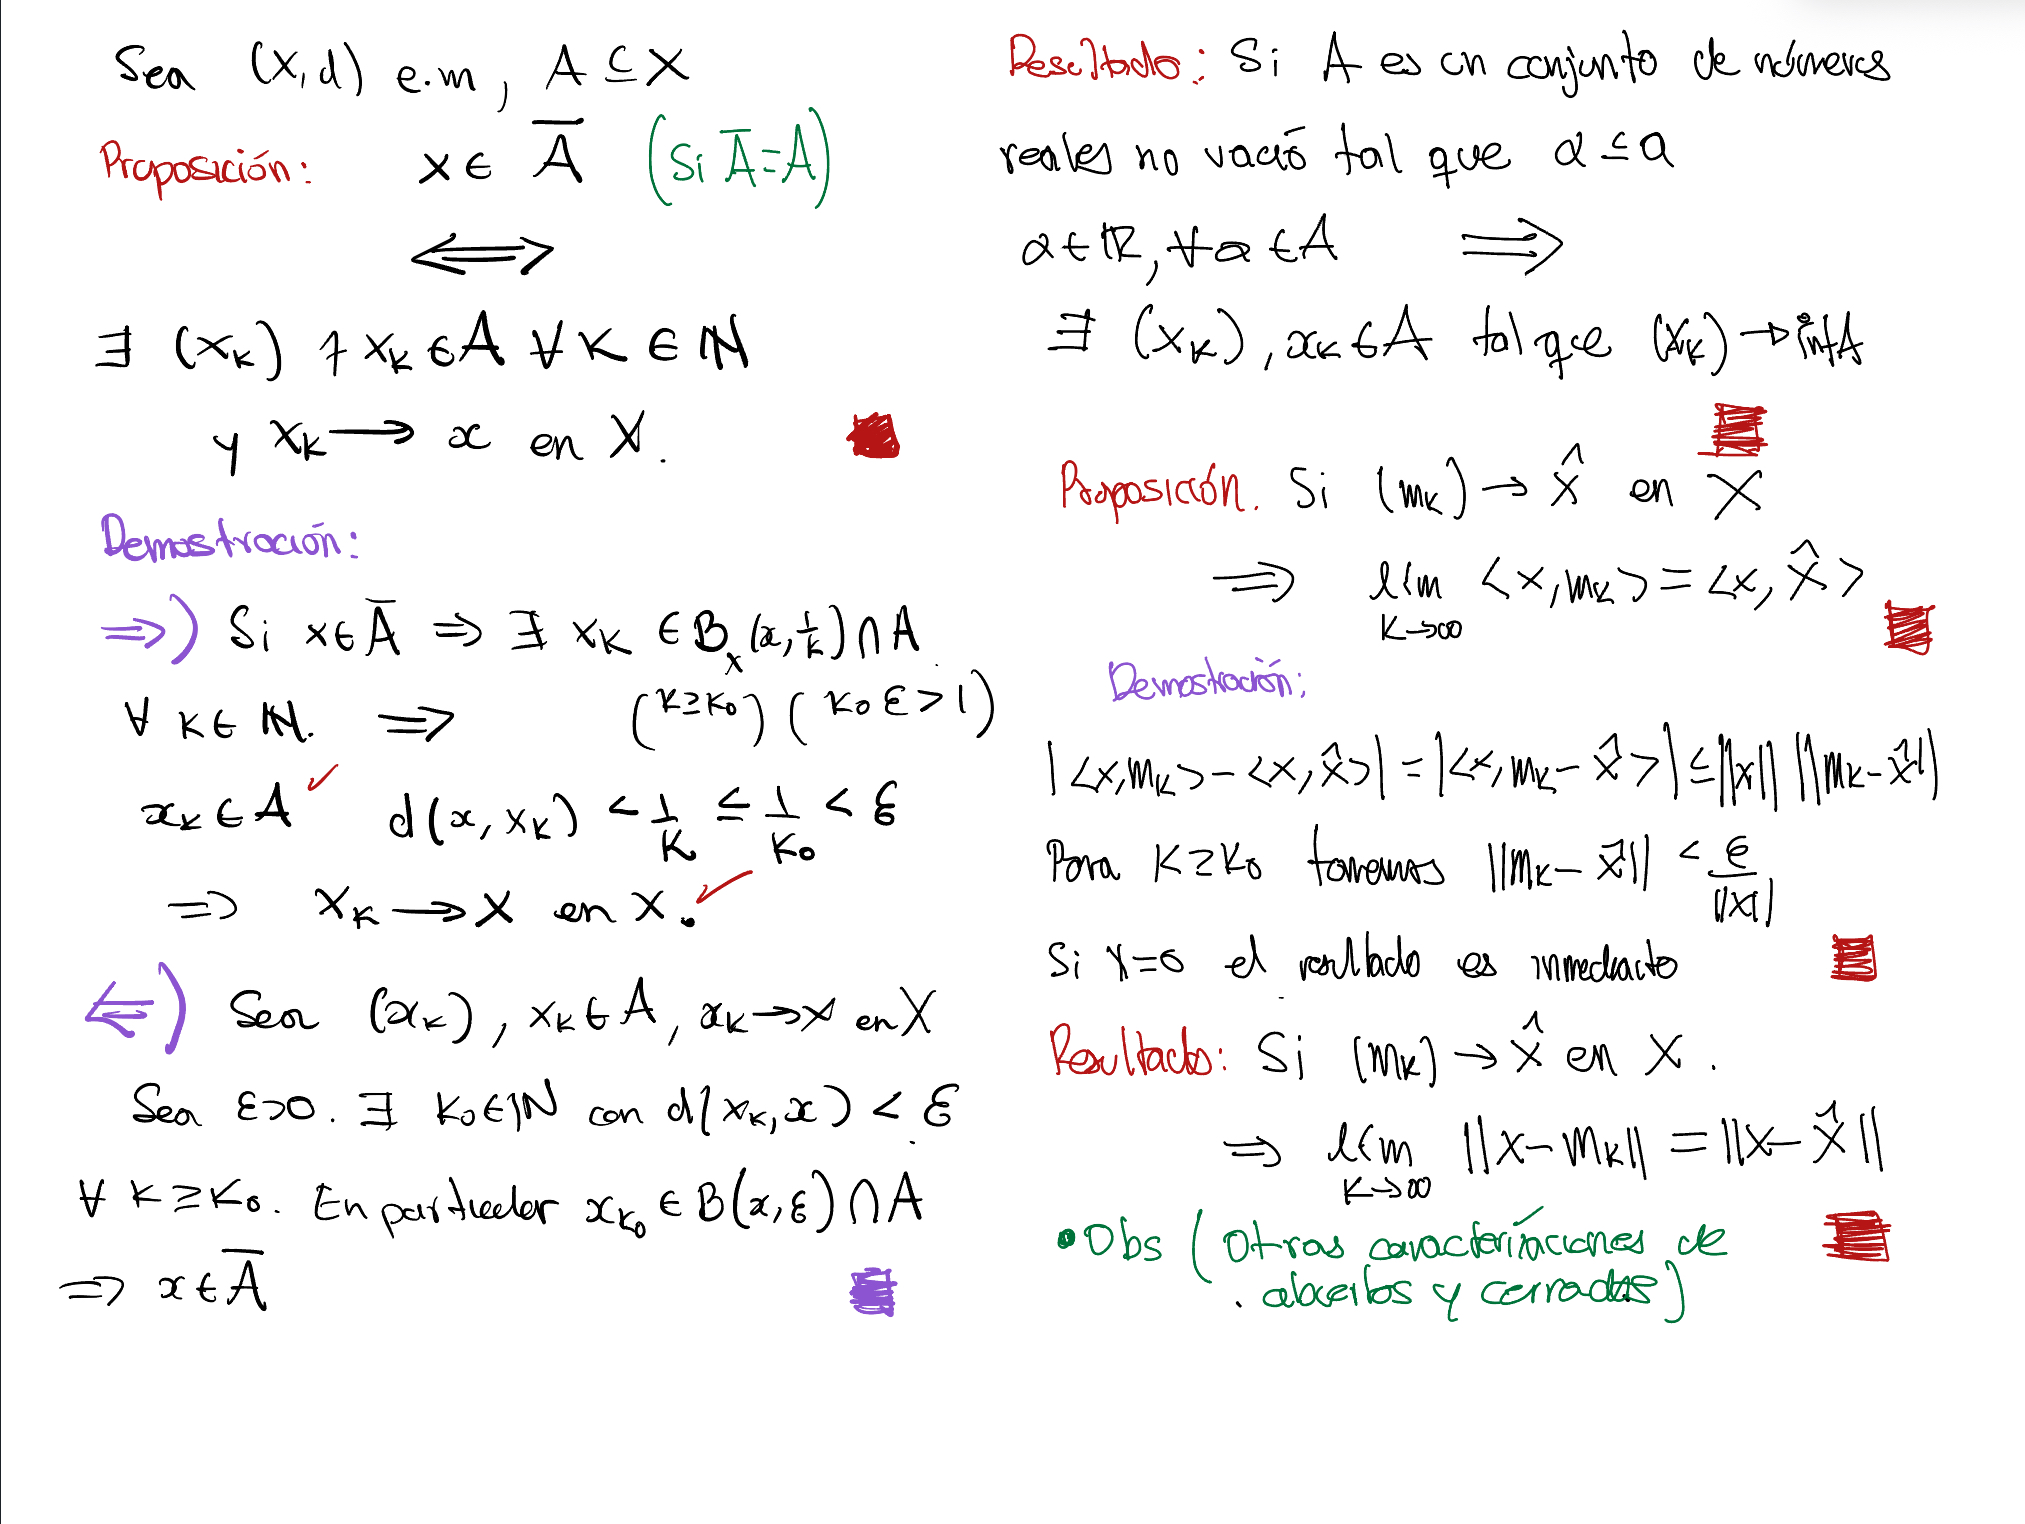 Sea (X,d) e.m, A ⊆ X
Proposición: x ∈ A̅ (Si A̅ = A)
⟺
∃ (x_k) ⊣ x_k ∈ A ∀ k ∈ ℕ
y x_k → x en X.
Demostración:
⇒) Si x ∈ A̅ ⇒ ∃ x_k ∈ B_X(x, 1/k) ∩ A
∀ k ∈ ℕ. ⇒ (k ≥ k₀) (k₀ ε > 1)
x_k ∈ A ✓ d(x, x_k) < 1/k ≤ 1/k₀ < ε
⇒ x_k → x en X. ✓
⇐) Sea (x_k), x_k ∈ A, x_k → x en X
Sea ε > 0. ∃ k₀ ∈ ℕ con d(x_k, x) < ε
∀ k ≥ k₀. En particular x_{k₀} ∈ B(x, ε) ∩ A
⇒ x ∈ A̅
Resultado: Si A es un conjunto de números
reales no vació tal que α ≤ a
α ∈ ℝ, ∀ a ∈ A ⟹
∃ (x_k), x_k ∈ A tal que (x_k) → inf A
Proposición. Si (m_k) → x̂ en X
⟹ lím_{k→∞} <x, m_k> = <x, x̂>
Demostración:
|<x, m_k> − <x, x̂>| = |<x, m_k − x̂>| ≤ ||x|| ||m_k − x̂||
Para k ≥ k₀ tomemos ||m_k − x̂|| < ε/||x||
Si x = 0 el resultado es inmediacto
Resultado: Si (m_k) → x̂ en X.
⟹ lím_{k→∞} ||x − m_k|| = ||x − x̂||
• Obs (Otras caracterizaciones de
abiertos y cerrados)